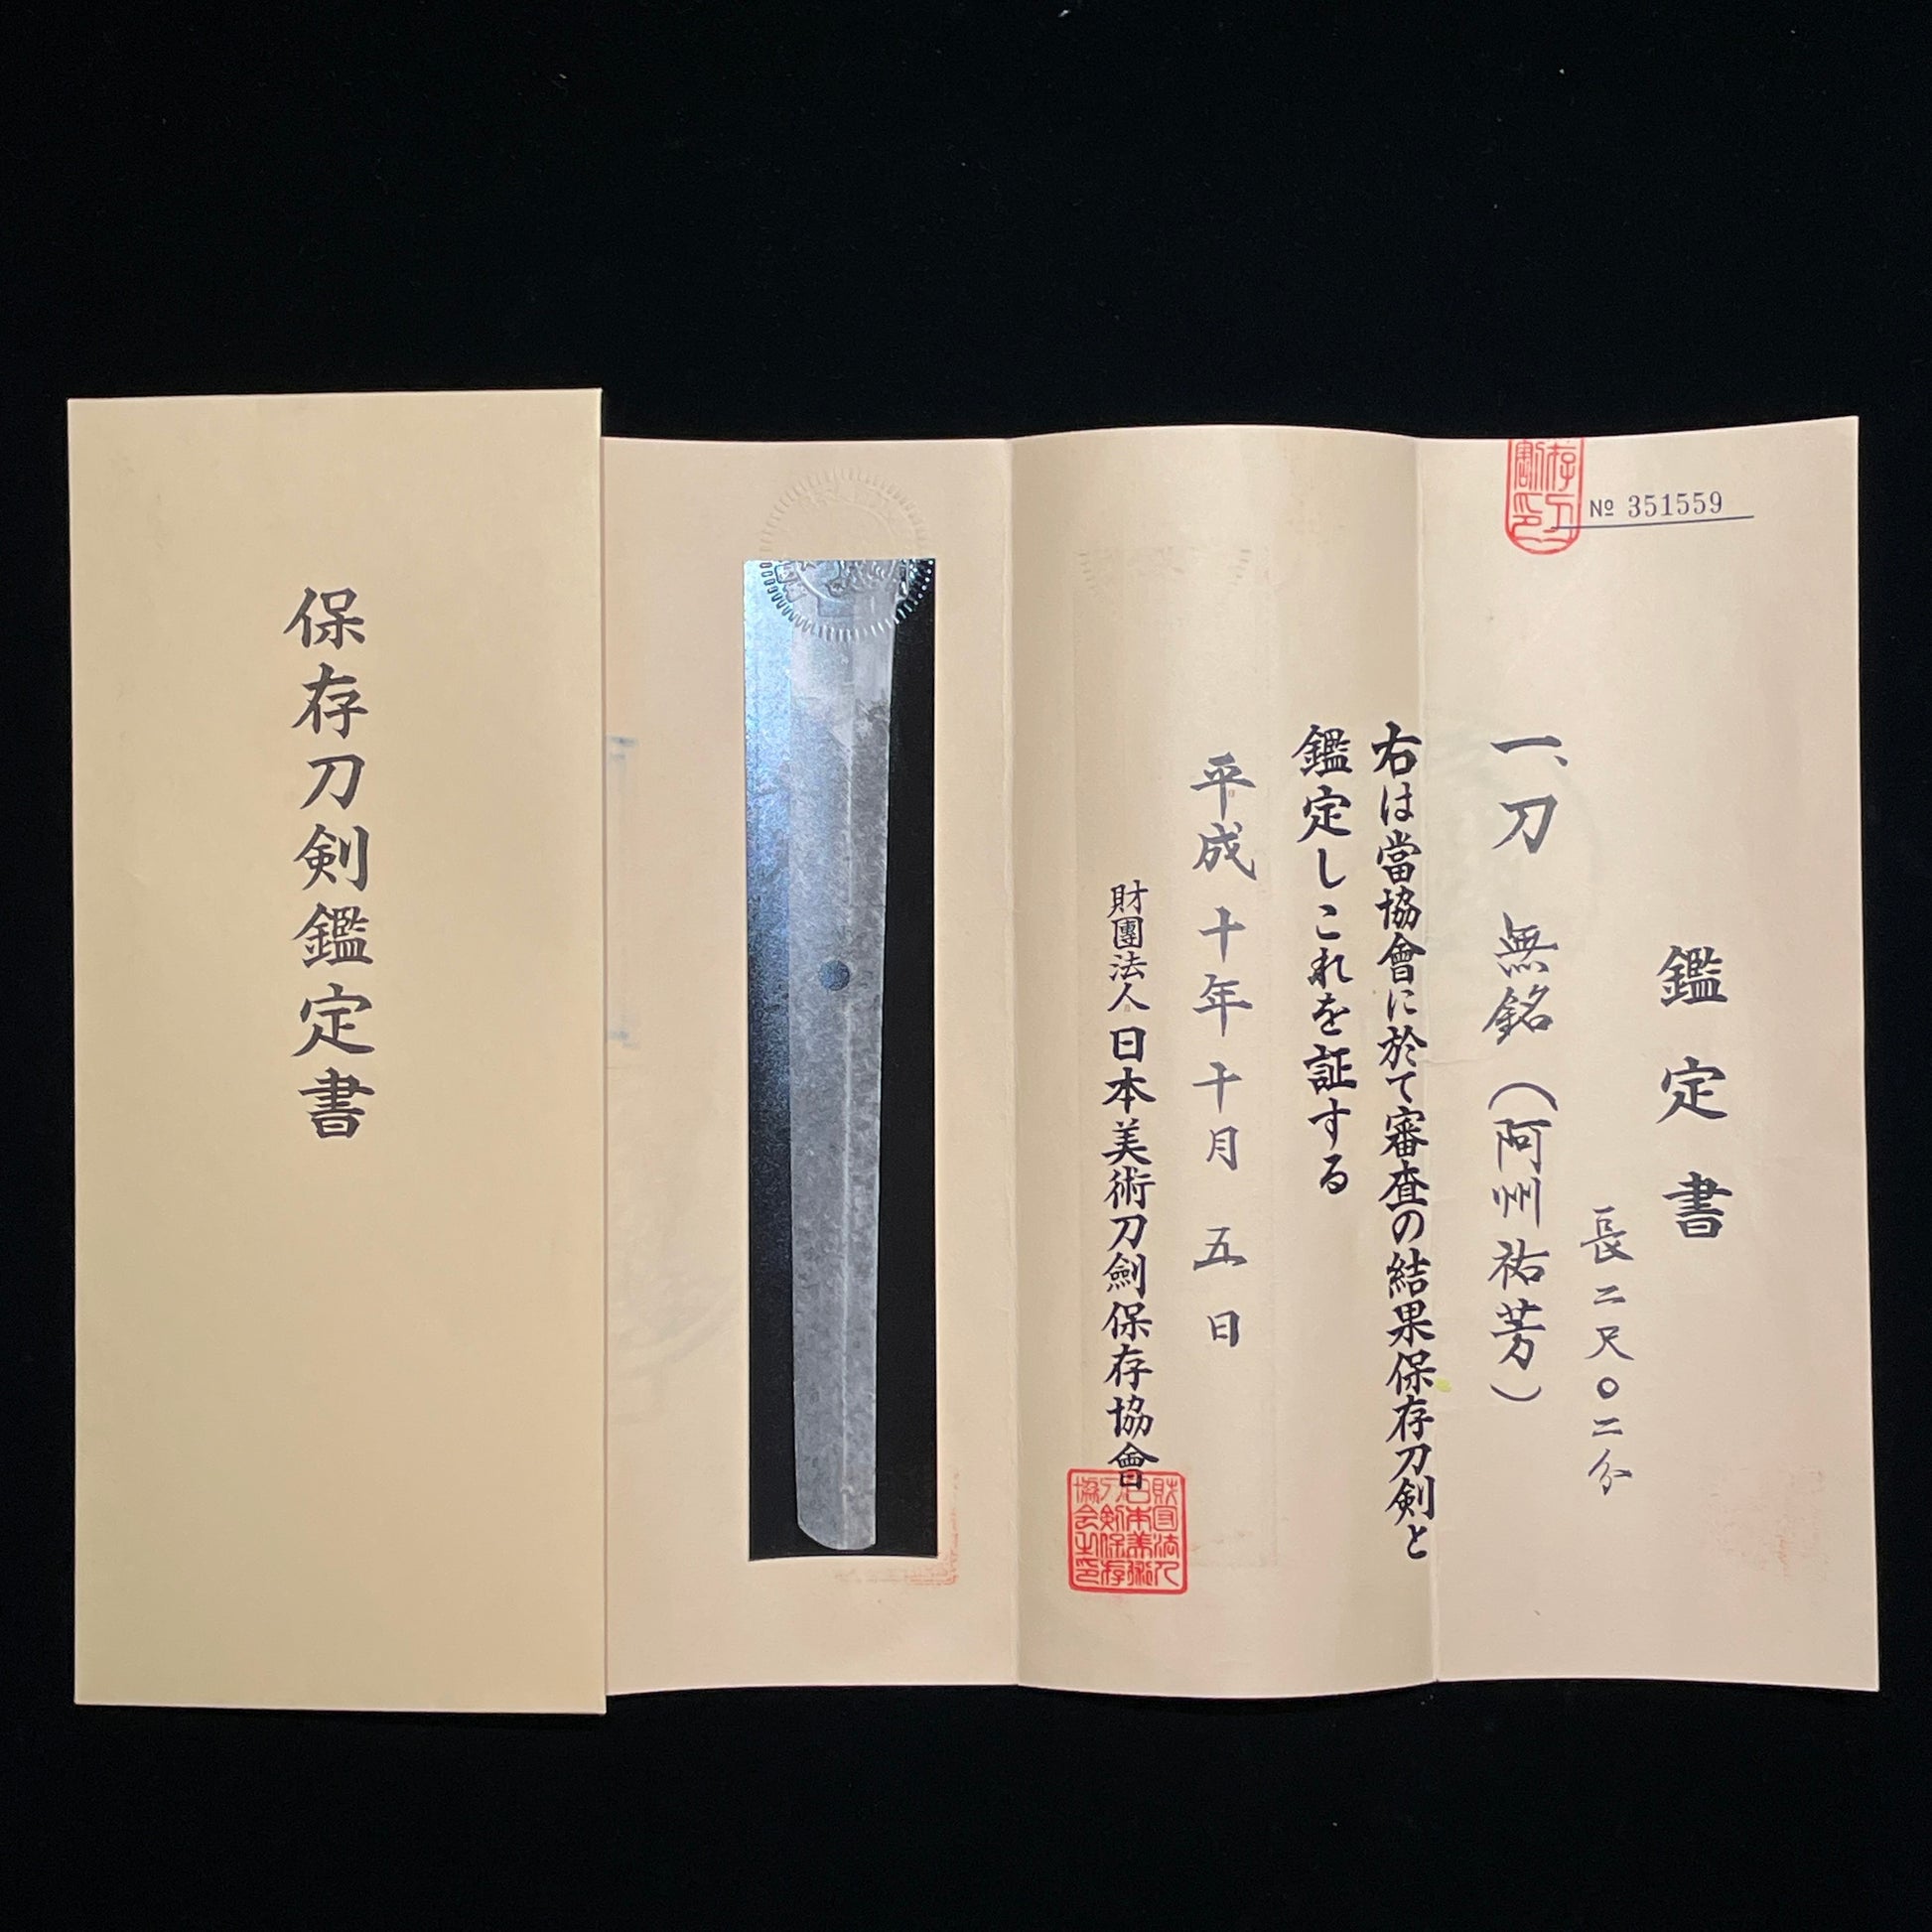 保存刀剣鑑定書
№ 351559
鑑定書
長二尺〇二分
一、刀 無銘（阿州祐芳）
右は當協會に於て審査の結果保存刀剣と
鑑定しこれを証する
平成十年十月五日
財團法人日本美術刀劍保存協會